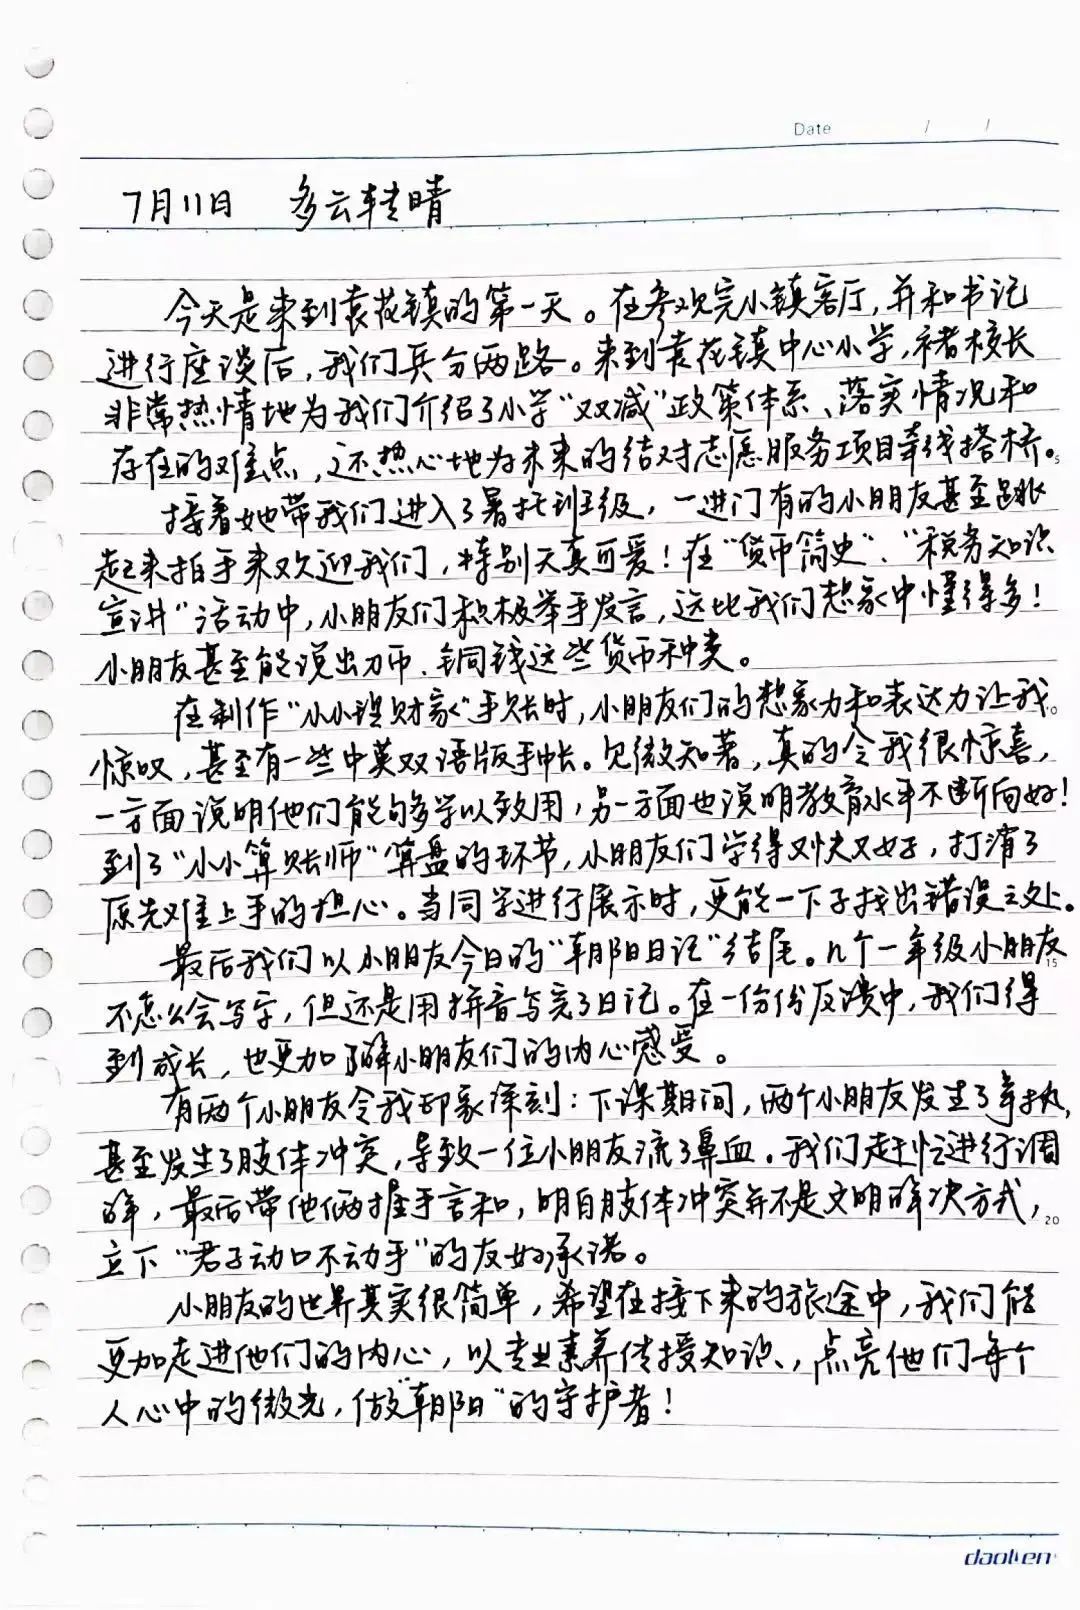 Date / /
7月11日 多云转晴
今天是来到袁花镇的第一天。在参观完小镇客厅，并和书记
进行座谈后，我们兵分两路。来到袁花镇中心小学，褚校长
非常热情地为我们介绍了小学“双减”政策体系、落实情况和
存在的难点，还热心地为未来的结对志愿服务项目牵线搭桥。
5
接着她带我们进入了暑托班班级，一进门有的小朋友甚至跳
起来拍手来欢迎我们，特别天真可爱！在“货币简史”、“税务知识
宣讲”活动中，小朋友们积极举手发言，远比我们想象中懂得多！
小朋友甚至能说出刀币、铜钱这些货币种类。
在制作“小小理财家”手账时，小朋友们的想象力和表达力让我
惊叹，甚至有一些中英双语版手帐。见微知著，真的令我很惊喜，
一方面说明他们能够学以致用，另一方面也说明教育水平不断向好！
到了“小小算账师”算盘的环节，小朋友们学得又快又好，打消了
原先难上手的担心。当同学进行展示时，更能一下子找出错误之处。
最后我们以小朋友今日的“朝阳日记”结尾。几个一年级小朋友
15
不怎么会写字，但还是用拼音写完了日记。在一份份反馈中，我们得
到成长，也更加了解小朋友们的内心感受。
有两个小朋友令我印象深刻：下课期间，两个小朋友发生了争执，
甚至发生了肢体冲突，导致一位小朋友流了鼻血。我们赶忙进行调
解，最后带他们俩握手言和，明白肢体冲突并不是文明的解决方式，
20
立下“君子动口不动手”的友好承诺。
小朋友的世界其实很简单，希望在接下来的旅途中，我们能
更加走进他们的内心，以专业素养传授知识，点亮他们每个
人心中的微光，做“朝阳”的守护者！
daolien